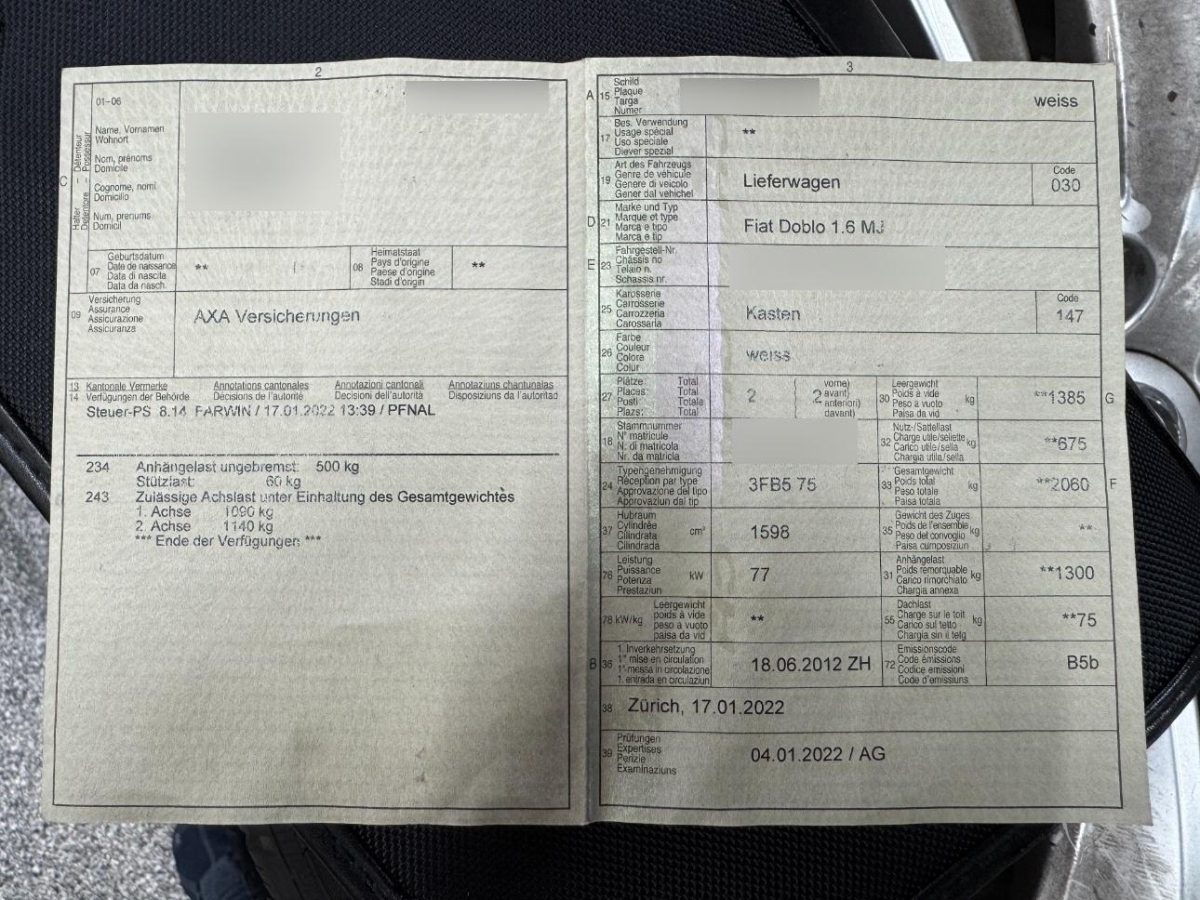 2
01-06
C
Halter – Détenteur
Detentore – Possessur
Name, Vornamen
Wohnort
Nom, prénoms
Domicile
Cognome, nomi
Domicilio
Num, prenums
Domicil
07
Geburtsdatum
Date de naissance
Data di nascita
Data da nasch.
**
08
Heimatstaat
Pays d'origine
Paese d'origine
Stadi d'origin
**
09
Versicherung
Assurance
Assicurazione
Assicuranza
AXA Versicherungen
13 Kantonale Vermerke Annotations cantonales Annotazioni cantonali Annotaziuns chantunalas
14 Verfügungen der Behörde Décisions de l'autorité Decisioni dell'autorità Disposiziuns da l'autoritad
Steuer-PS 8.14 FARWIN / 17.01.2022 13:39 / PFNAL
234 Anhängelast ungebremst: 500 kg
Stützlast: 60 kg
243 Zulässige Achslast unter Einhaltung des Gesamtgewichtes
1. Achse 1090 kg
2. Achse 1140 kg
*** Ende der Verfügungen ***
3
A 15
Schild
Plaque
Targa
Numer
weiss
17
Bes. Verwendung
Usage spécial
Uso speciale
Diever spezial
**
19
Art des Fahrzeugs
Genre de véhicule
Genere di veicolo
Gener dal vehichel
Lieferwagen
Code
030
D 21
Marke und Typ
Marque et type
Marca e tipo
Marca e tip
Fiat Doblo 1.6 MJ
E 23
Fahrgestell-Nr.
Châssis no
Telaio n.
Schassis nr.
25
Karosserie
Carrosserie
Carrozzeria
Carossaria
Kasten
Code
147
26
Farbe
Couleur
Colore
Colur
weiss
27
Plätze: Total
Places: Total
Posti: Totale
Plazs: Total
2
vorne)
avant)
anteriori)
davant)
2
30
Leergewicht
Poids à vide
Peso a vuoto
Paisa da vid
kg
**1385
G
18
Stammnummer
N° matricule
N. di matricola
Nr. da matricla
32
Nutz-/Sattellast
Charge utile/sellette
Carico utile/sella
Chargia utila/sella
kg
**675
24
Typengenehmigung
Réception par type
Approvazione del tipo
Approvaziun dal tip
3FB5 75
33
Gesamtgewicht
Poids total
Peso totale
Paisa totala
kg
**2060
F
37
Hubraum
Cylindrée
Cilindrata
Cilindrada
cm³
1598
35
Gewicht des Zuges
Poids de l'ensemble
Peso del convoglio
Paisa cumposiziun
kg
**
76
Leistung
Puissance
Potenza
Prestaziun
kW
77
31
Anhängelast
Poids remorquable
Carico rimorchiato
Chargia annexa
kg
**1300
78 kW/kg
Leergewicht
poids à vide
peso a vuoto
paisa da vid
**
55
Dachlast
Charge sur le toit
Carico sul tetto
Chargia sin il tetg
kg
**75
B 36
1. Inverkehrsetzung
1re mise en circulation
1a messa in circolazione
1. entrada en circulaziun
18.06.2012 ZH
72
Emissionscode
Code émissions
Codice emissioni
Code d'emissiuns
B5b
38 Zürich, 17.01.2022
39
Prüfungen
Expertises
Perizie
Examinaziuns
04.01.2022 / AG